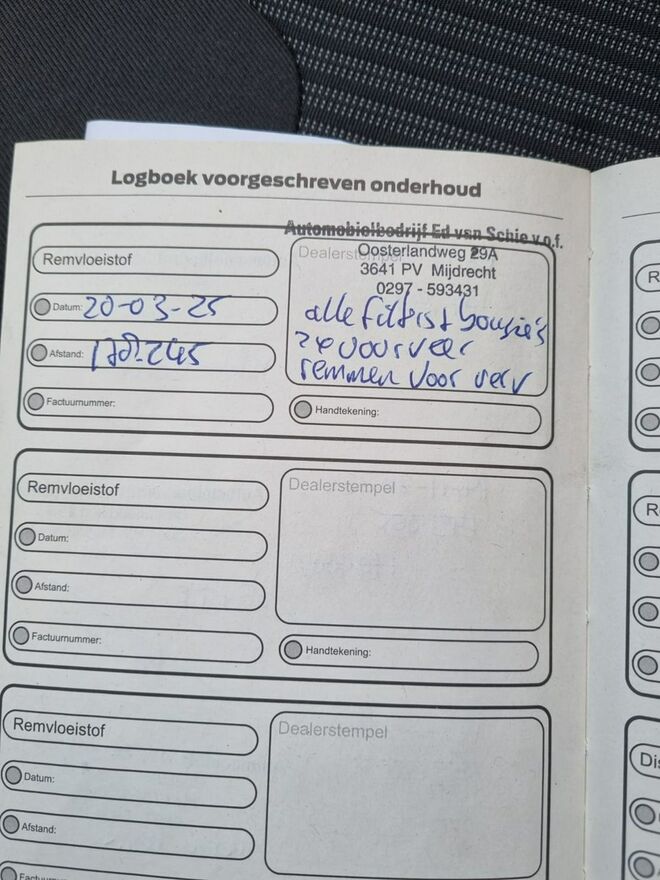 Logboek voorgeschreven onderhoud
Remvloeistof
Datum: 20-03-25
Afstand:
Factuurnummer:
Automobielbedrijf Ed van Schie v.o.f.
Dealerstempel
Oosterlandweg 29A
3641 PV Mijdrecht
0297 - 593431
alle filters + bougie's
voorveer
remmen voor verv
Handtekening:
Remvloeistof
Datum:
Afstand:
Factuurnummer:
Dealerstempel
Handtekening:
Remvloeistof
Datum:
Afstand:
Factuurnummer:
Dealerstempel
R
R
Dis